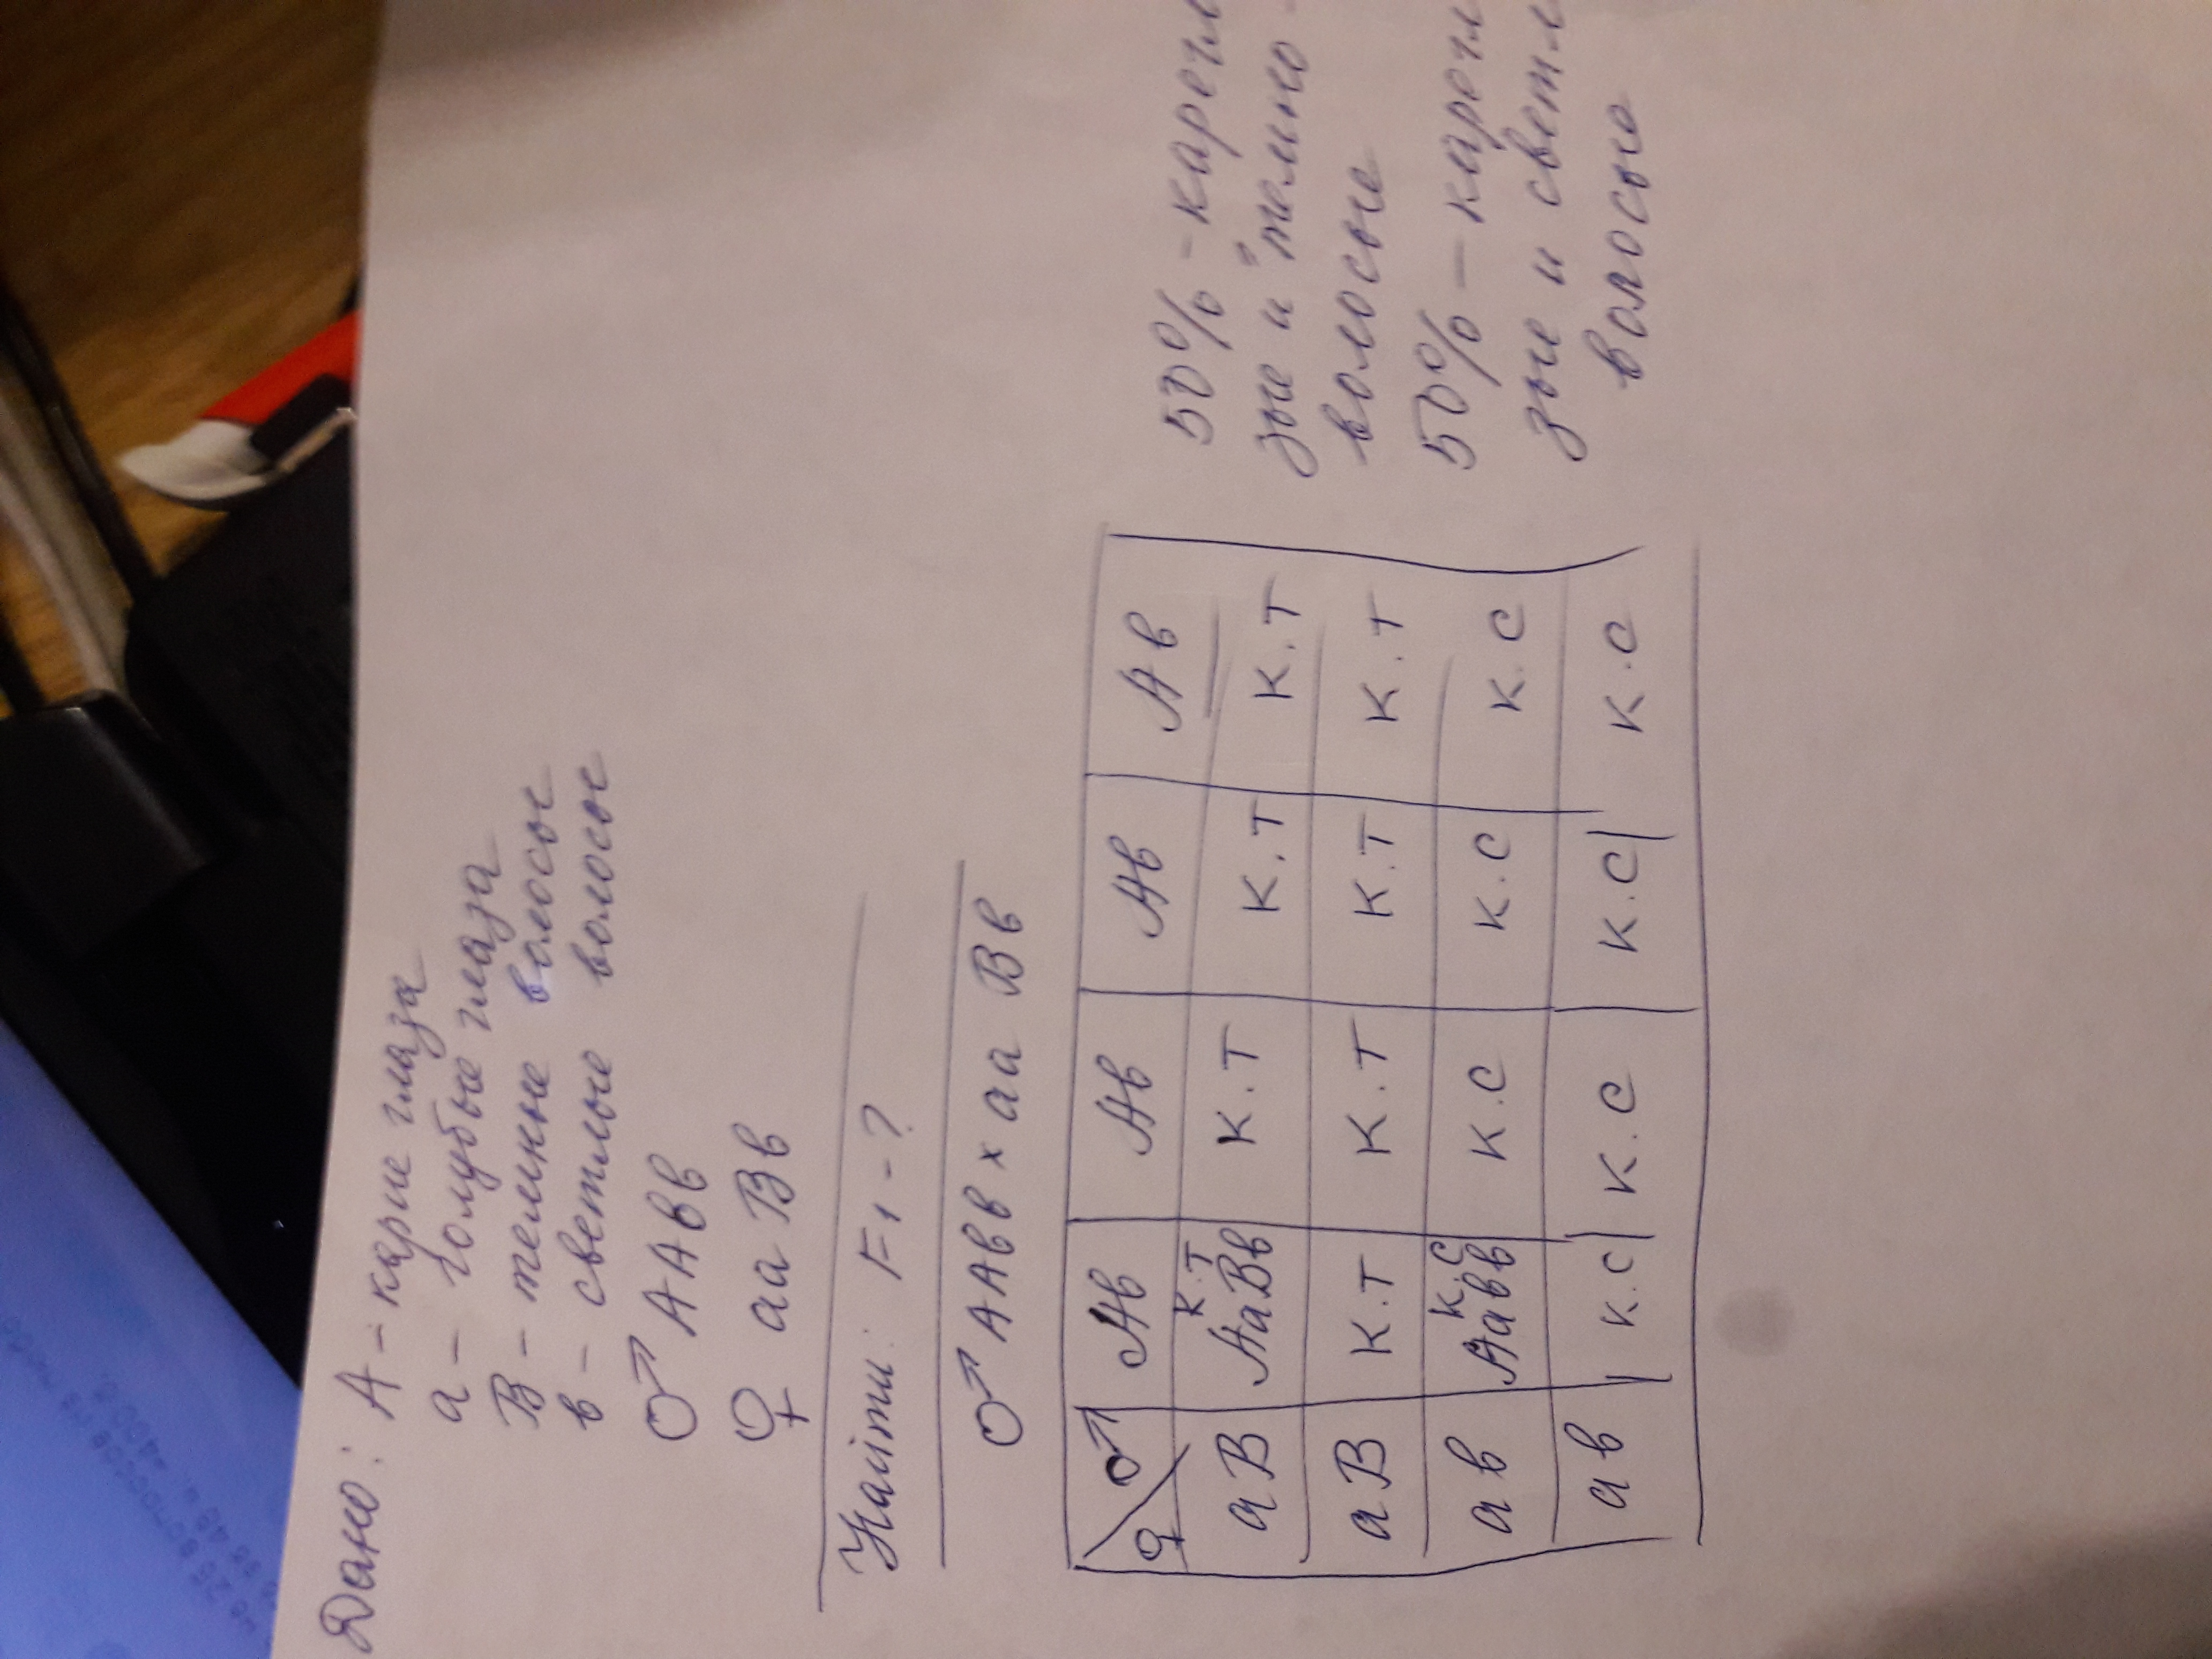 Дано: А - карие глаза
а - голубые глаза
В - темные волосы
в - светлые волосы
♂ ААвв
♀ аа Вв
Найти: F1 - ?
♂ ААвв х аа Вв
♀ ♂ Ав Ав Ав Ав
аВ К.Т АаВв К.Т К.Т К.Т
аВ К.Т К.Т К.Т К.Т
ав К.С Аавв К.С К.С К.С
ав К.С К.С К.С К.С
50% - карегла
зые и темно -
волосые
50% - карегл
зые и светл
волосые